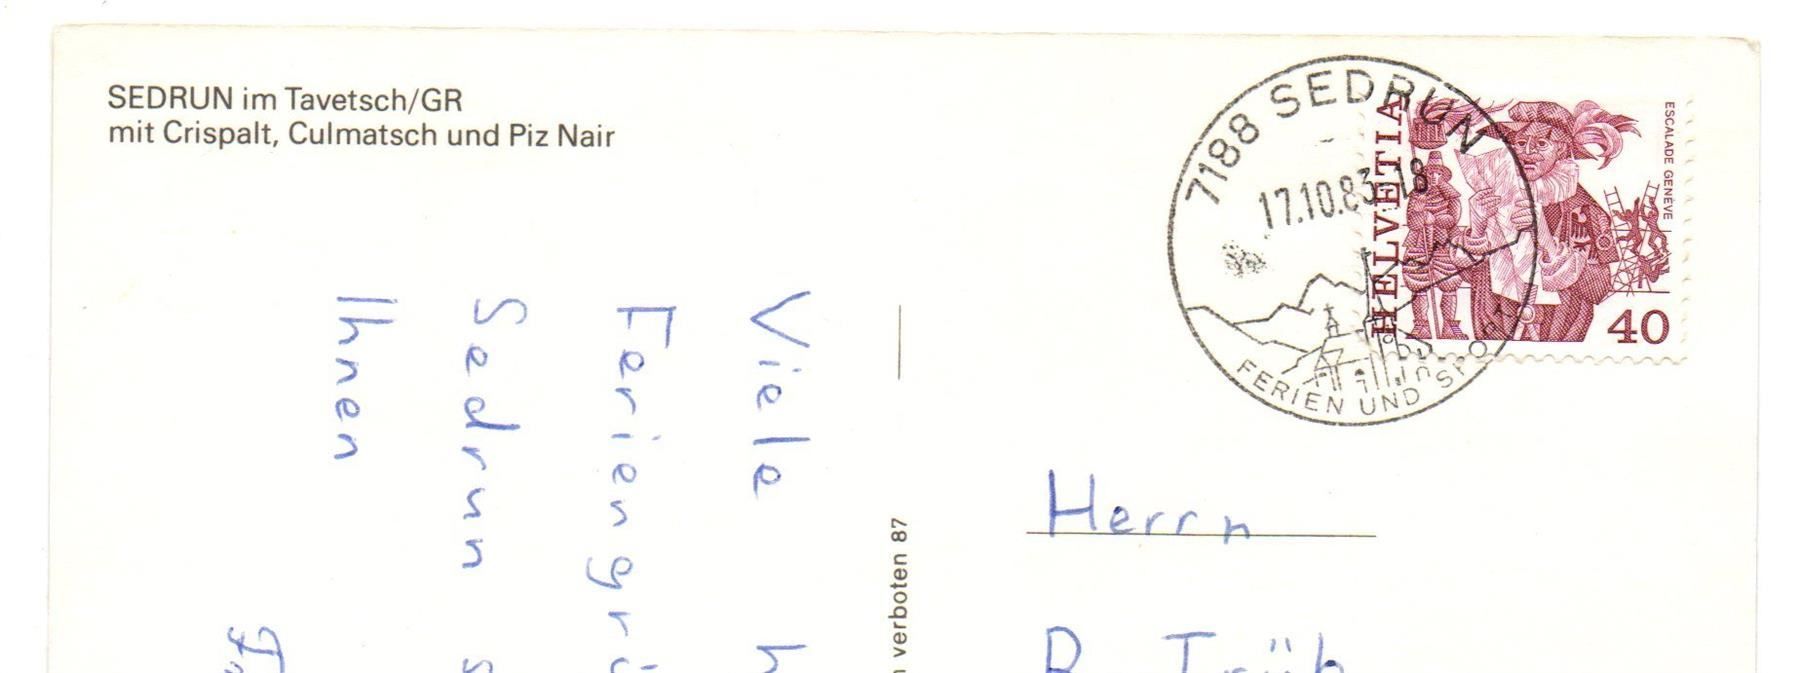 SEDRUN im Tavetsch/GR
mit Crispalt, Culmatsch und Piz Nair
7188 SEDRUN
17.10.83-18
FERIEN UND SPORT
HELVETIA
ESCALADE GENÈVE
40
Viele
Feriengrü
Sedrun
Ihnen
verboten 87
Herrn
R. Trüb